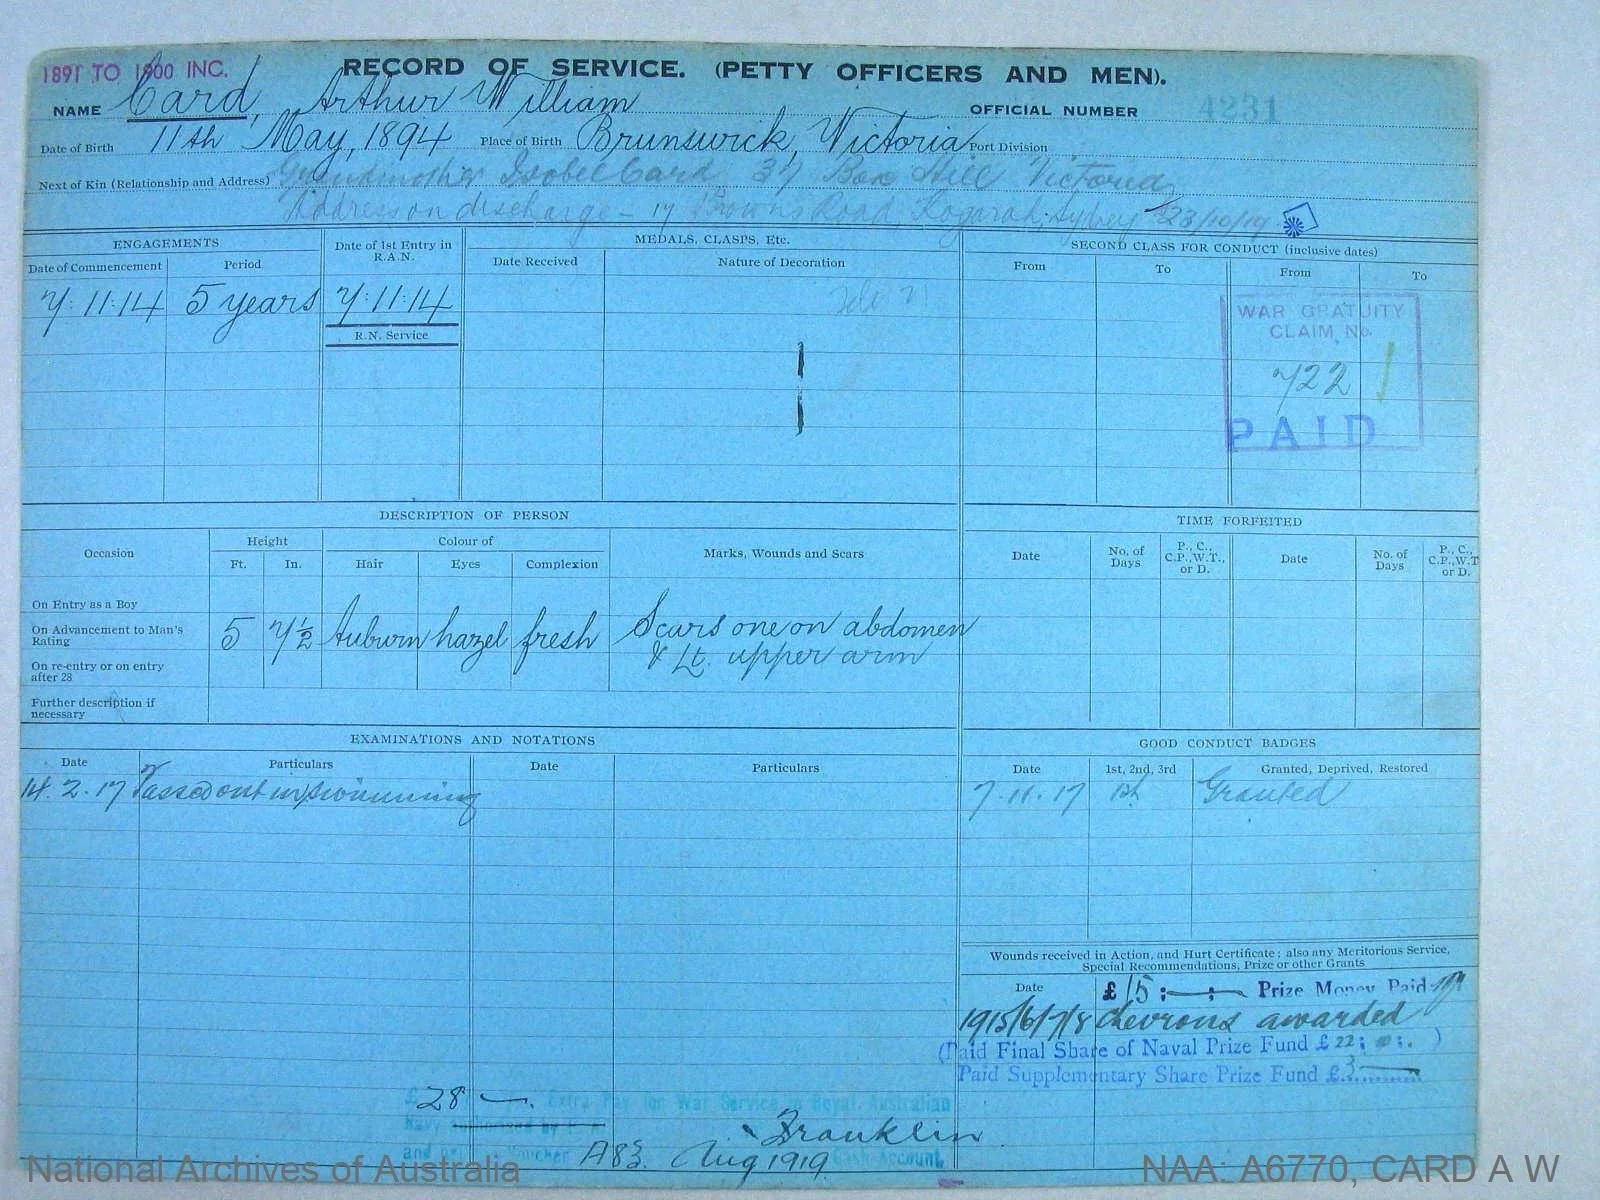 1891 TO 1900 INC.
RECORD OF SERVICE. (PETTY OFFICERS AND MEN).
NAME Card, Arthur William OFFICIAL NUMBER 4231
Date of Birth 11th May, 1894 Place of Birth Brunswick, Victoria Port Division
Next of Kin (Relationship and Address) Grandmother Isobel Card 37 Box Hill Victoria
Address on discharge - 17 Browns Road, Kogarah, Sydney 23/10/19
ENGAGEMENTS Date of 1st Entry in R.A.N. MEDALS, CLASPS, Etc. SECOND CLASS FOR CONDUCT (inclusive dates)
Date of Commencement Period Date Received Nature of Decoration From To From To
7:11:14 5 years 7:11:14
R.N. Service
WAR GRATUITY
CLAIM, No.
722
PAID
DESCRIPTION OF PERSON TIME FORFEITED
Occasion Height Colour of Marks, Wounds and Scars Date No. of Days P., C., C.P., W.T., or D. Date No. of Days P., C., C.P., W.T or D.
Ft. In. Hair Eyes Complexion
On Entry as a Boy
On Advancement to Man's Rating 5 7½ Auburn hazel fresh Scars one on abdomen
& Lt. upper arm
On re-entry or on entry after 28
Further description if necessary
EXAMINATIONS AND NOTATIONS GOOD CONDUCT BADGES
Date Particulars Date Particulars Date 1st, 2nd, 3rd Granted, Deprived, Restored
14.2.17 Passed out in swimming 7.11.17 1st Granted
Wounds received in Action, and Hurt Certificate; also any Meritorious Service,
Special Recommendations, Prize or other Grants
Date £15 : - : - Prize Money Paid
1915/6/7/8 chevrons awarded
(Paid Final Share of Naval Prize Fund £ 22 : )
Paid Supplementary Share Prize Fund £ 3
£ 28 Extra Pay for War Service in Royal Australian
Navy Franklin
and Voucher A83. Aug 1919 Cash Account.
National Archives of Australia NAA: A6770, CARD A W